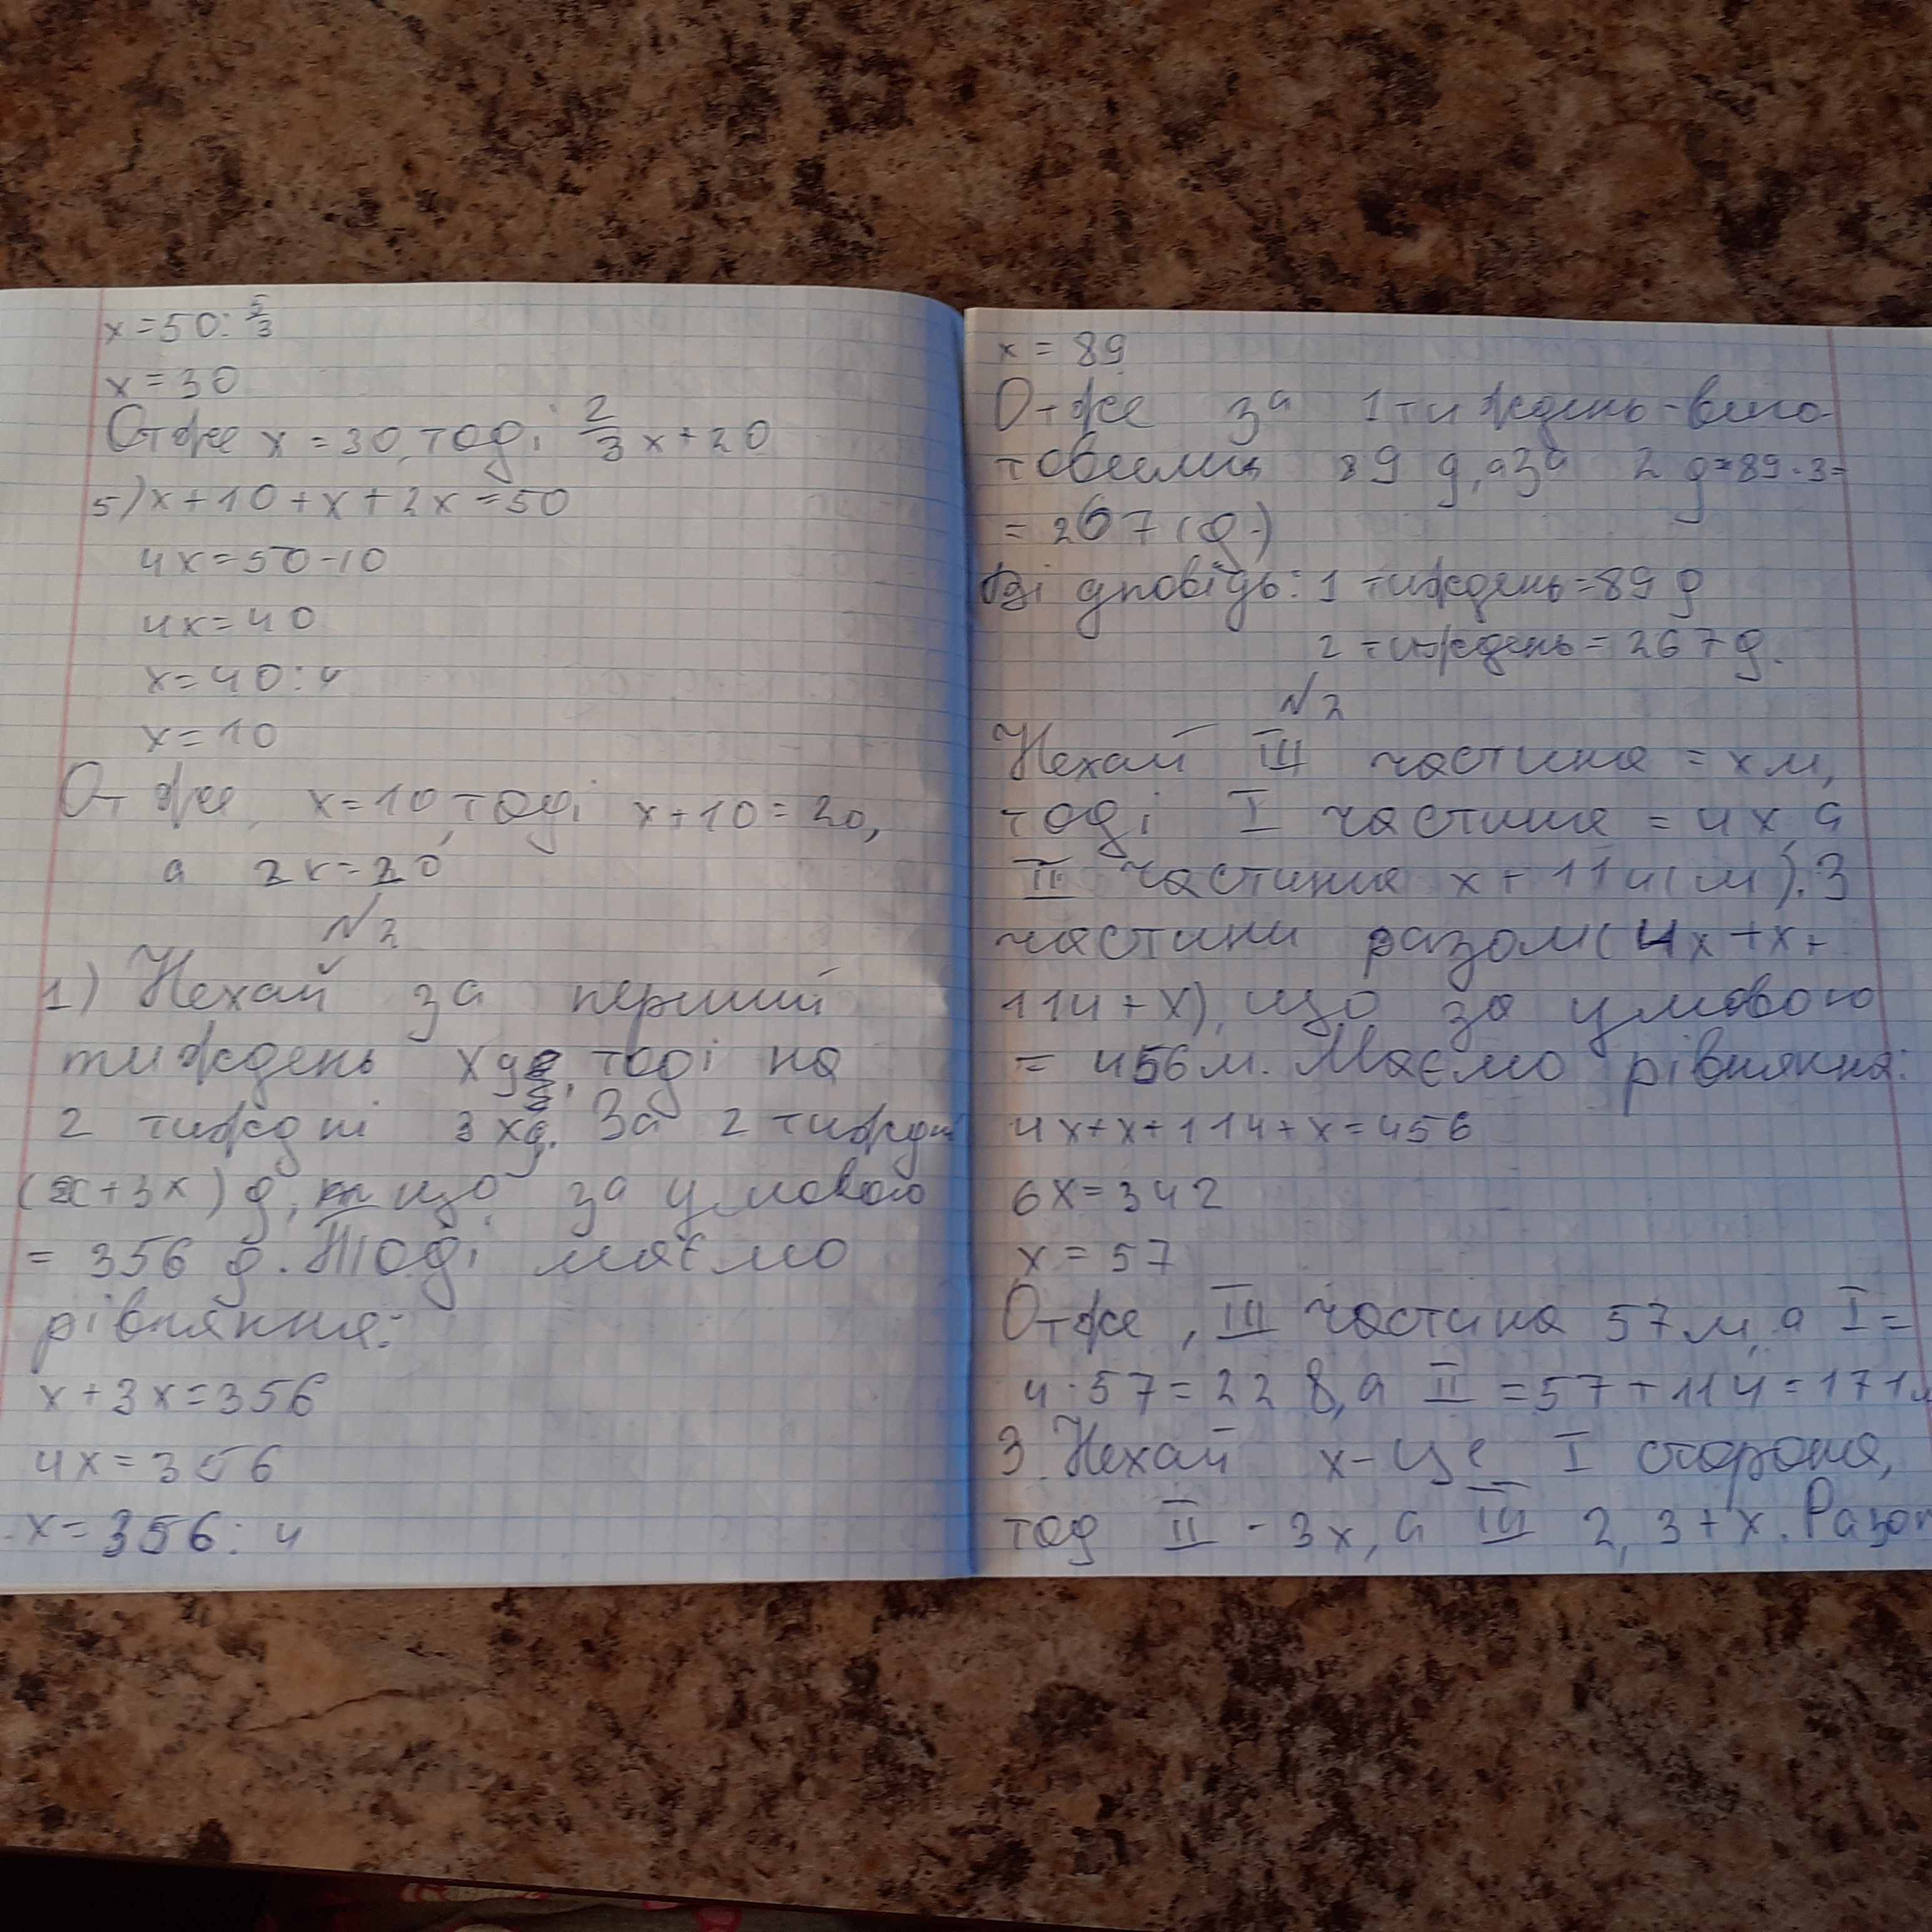 x = 50 : 5/3
x = 30
Отже x = 30, тоді 2/3 x + 20
5) x + 10 + x + 2x = 50
4x = 50 - 10
4x = 40
x = 40 : 4
x = 10
Отже, x = 10, тоді x + 10 = 20,
а 2x = 20
№2
1) Нехай за перший
тиждень x д, тоді на
2 тиждні 3x д. За 2 тиждн
(x + 3x) д, що за умовою
= 356 д. Тоді маємо
рівняння:
x + 3x = 356
4x = 356
x = 356 : 4
x = 89
Отже за 1 тиждень - виго
товили 89 д, а за 2 д = 89 · 3 =
= 267 (д.)
Відповідь: 1 тиждень = 89 д
2 тиждень = 267 д.
№2
Нехай III частина = x м,
тоді I частина = 4x, а
II частина x + 114 (м). 3
частини разом (4x + x +
114 + x), що за умовою
= 456 м. Маємо рівняння:
4x + x + 114 + x = 456
6x = 342
x = 57
Отже, III частина 57 м, а I =
4 · 57 = 228, а II = 57 + 114 = 171 м
3. Нехай x - це I сторона,
тод II - 3x, а III 2,3 + x. Разом